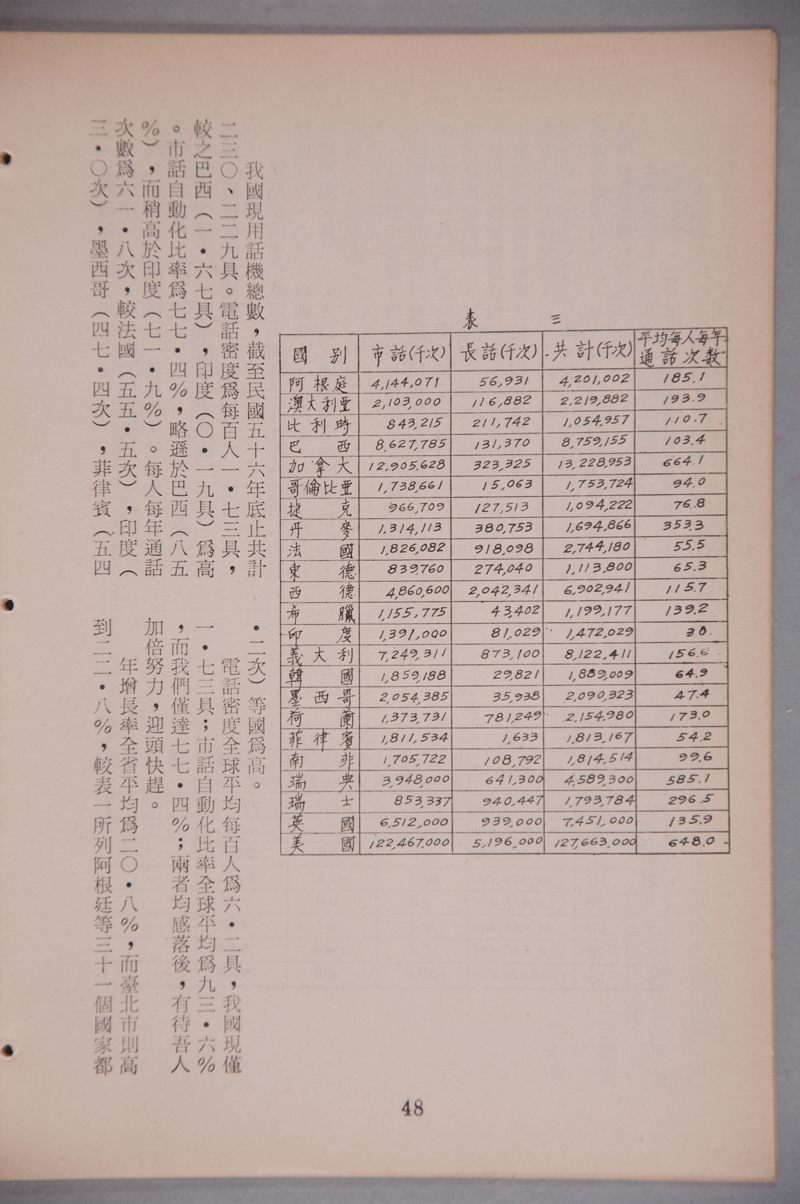 表 三
國別 市話(千次) 長話(千次) 共計(千次) 平均每人每年通話次數
阿根庭 4,144,071 56,931 4,201,002 185.1
澳大利亞 2,103,000 116,882 2,219,882 193.9
比利時 843,215 211,742 1,054,957 110.7
巴西 8,627,785 131,370 8,759,155 103.4
加拿大 12,905,628 323,325 13,228,953 664.1
哥倫比亞 1,738,661 15,063 1,753,724 94.0
捷克 966,709 127,513 1,094,222 76.8
丹麥 1,314,113 380,753 1,694,866 353.3
法國 1,826,082 918,098 2,744,180 55.5
東德 839,760 274,040 1,113,800 65.3
西德 4,860,600 2,042,341 6,902,941 115.7
希臘 1,155,775 43,402 1,199,177 139.2
印度 1,391,000 81,029 1,472,029 30.
義大利 7,249,311 873,100 8,122,411 156.6
韓國 1,859,188 29,821 1,889,009 64.9
墨西哥 2,054,385 35,938 2,090,323 47.4
荷蘭 1,373,731 781,249 2,154,980 173.0
菲律賓 1,811,534 1,633 1,813,167 54.2
南非 1,705,722 108,792 1,814,514 99.6
瑞典 3,948,000 641,300 4,589,300 585.1
瑞士 853,337 940,447 1,793,784 296.5
英國 6,512,000 939,000 7,451,000 135.9
美國 122,467,000 5,196,000 127,663,000 648.0
我國現用話機總數,截至民國五十六年底止共計
二三〇、二二九具。電話密度爲每百人一・七三具,
較之巴西(一・六七具),印度(〇・一九具)爲高
。市話自動化比率爲七七・四%,略遜於巴西(八五
%),而稍高於印度(七一・九%)。每人每年通話
次數爲六一・八次,較法國(五五・五次),印度(
三・〇次),墨西哥(四七・四次),菲律賓(五四
・二次)等國爲高。
電話密度全球平均每百人爲六・二具,我國現僅
一・七三具;市話自動化比率全球平均爲九三・六%
,而我們僅達七七・四%;兩者均感落後,有待吾人
加倍努力,迎頭快趕。
年增長率全省平均爲二〇・八%,而臺北市則高
到二二・八%,較表一所列阿根廷等三十一個國家都
48